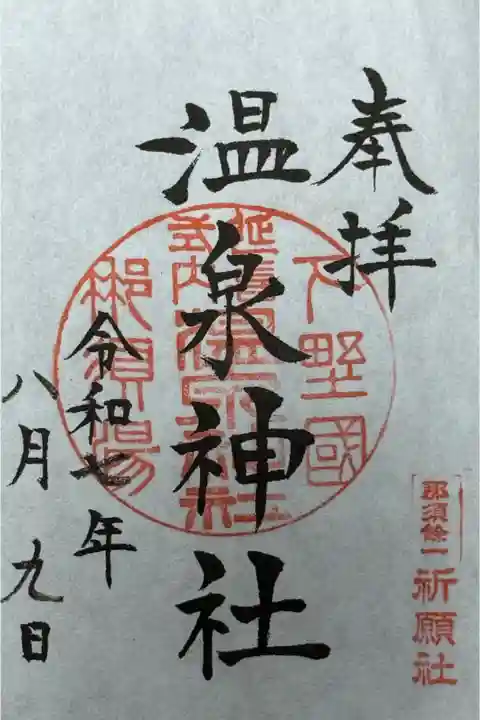 奉拝
下野國
温泉神社
延喜
式内
温泉神社
那須湯
令和七年
八月九日
那須餘一
祈願社